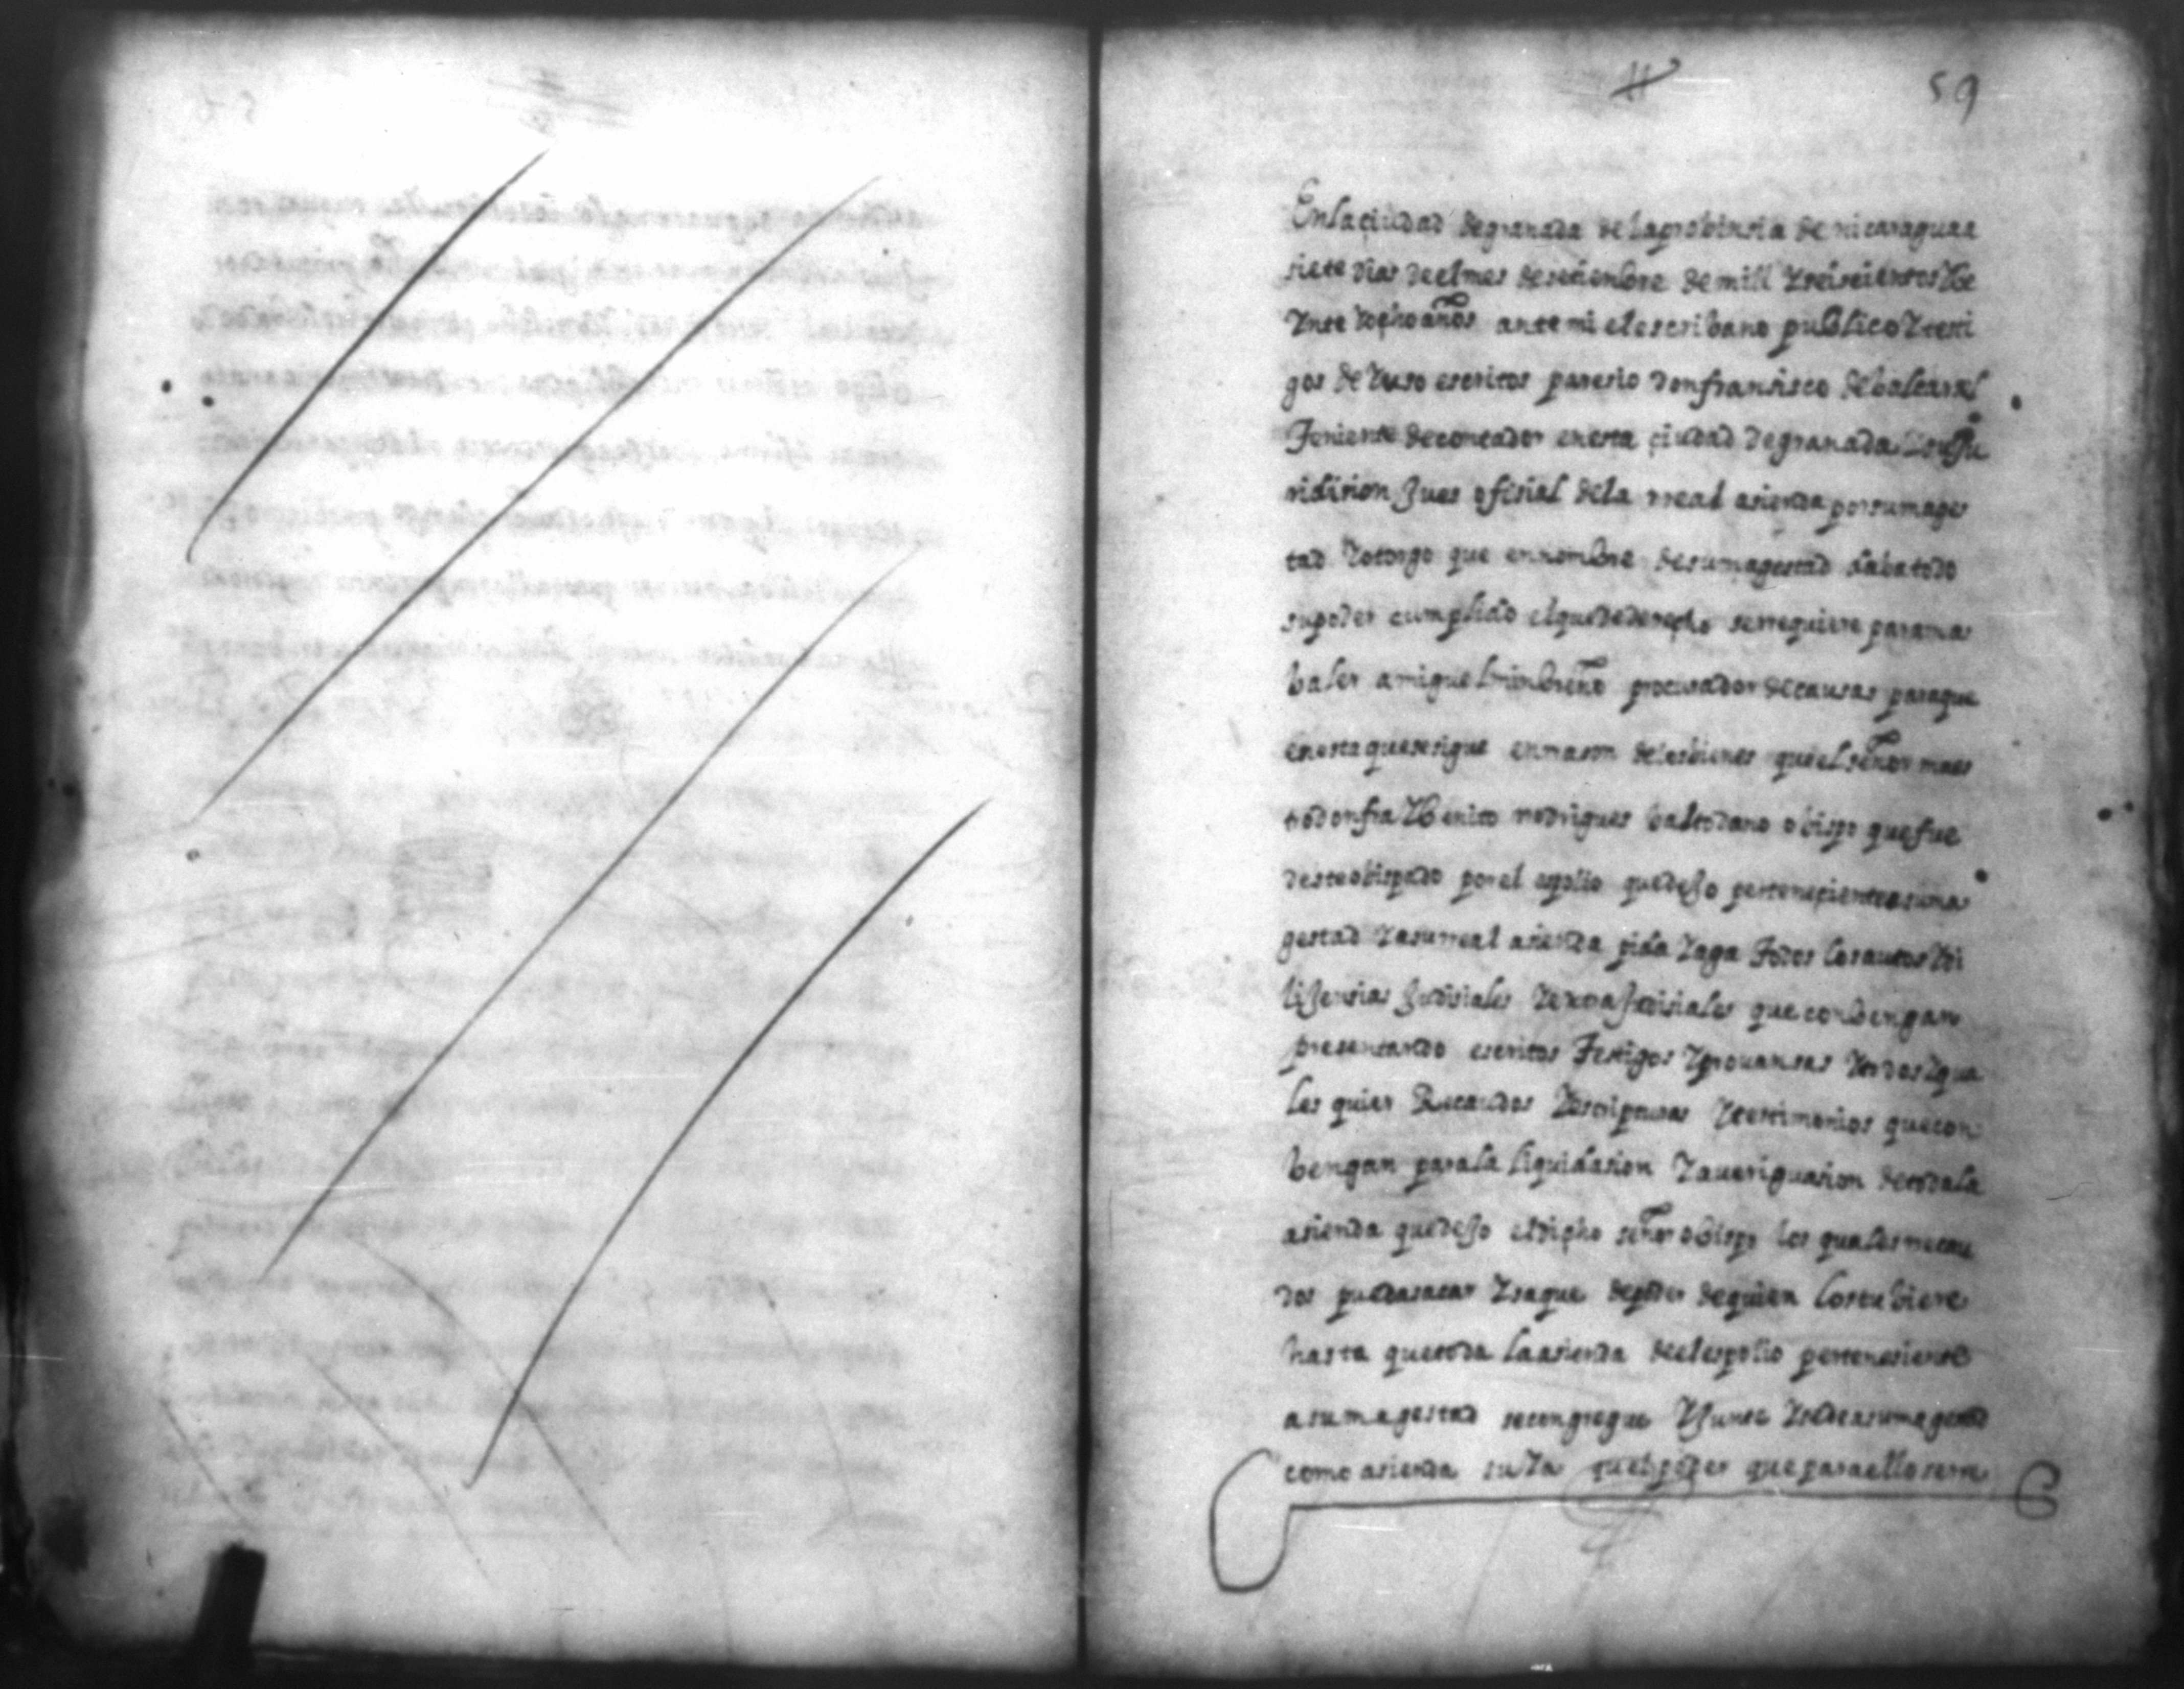 59
En la çiudad de granada de la probinsia de nicaragua a
siete dias de el mes de setienbre de mill y seisientos y be
ynte y ocho años ante mi el escribano publico y testi
gos de yuso escritos paresio don fransisco de balcasal
Teniente de contador en esta çiudad de granada y su Ju
ridision Jues ofisial de la rreal asienda por su mages
tad y otorgo que en nombre de su magestad daba todo
su poder cumplido el que de derecho se rrequiere para mas
baler a miguel mimbreño procurador de causas para que
en esta que se sigue en rrason de los bienes que el señor maes
tro don frai benito rrodrigues baltodano obispo que fue
deste obispado por el espolio que dejo perteneçiente a su ma
gestad y a su rreal asienda pida y aga Todos los autos y di
liJensias Judisiales y extraJudisiales que conbengan
presentando escritos Testigos y prouansas y otros qua
les quier Recaudos y escripturas y testimonios que con
bengan para la liquidasion y aueriguasion de toda la
asienda que dejo el dicho señor obispo los quales rrecau
dos pueda sacar y saque de poder de quien los tubiere
hasta que toda la asienda de el espolio pertenesiente
a su magestad se congregue y Junte y se de a su magestad
como asienda suya que el poder que para ello se rre